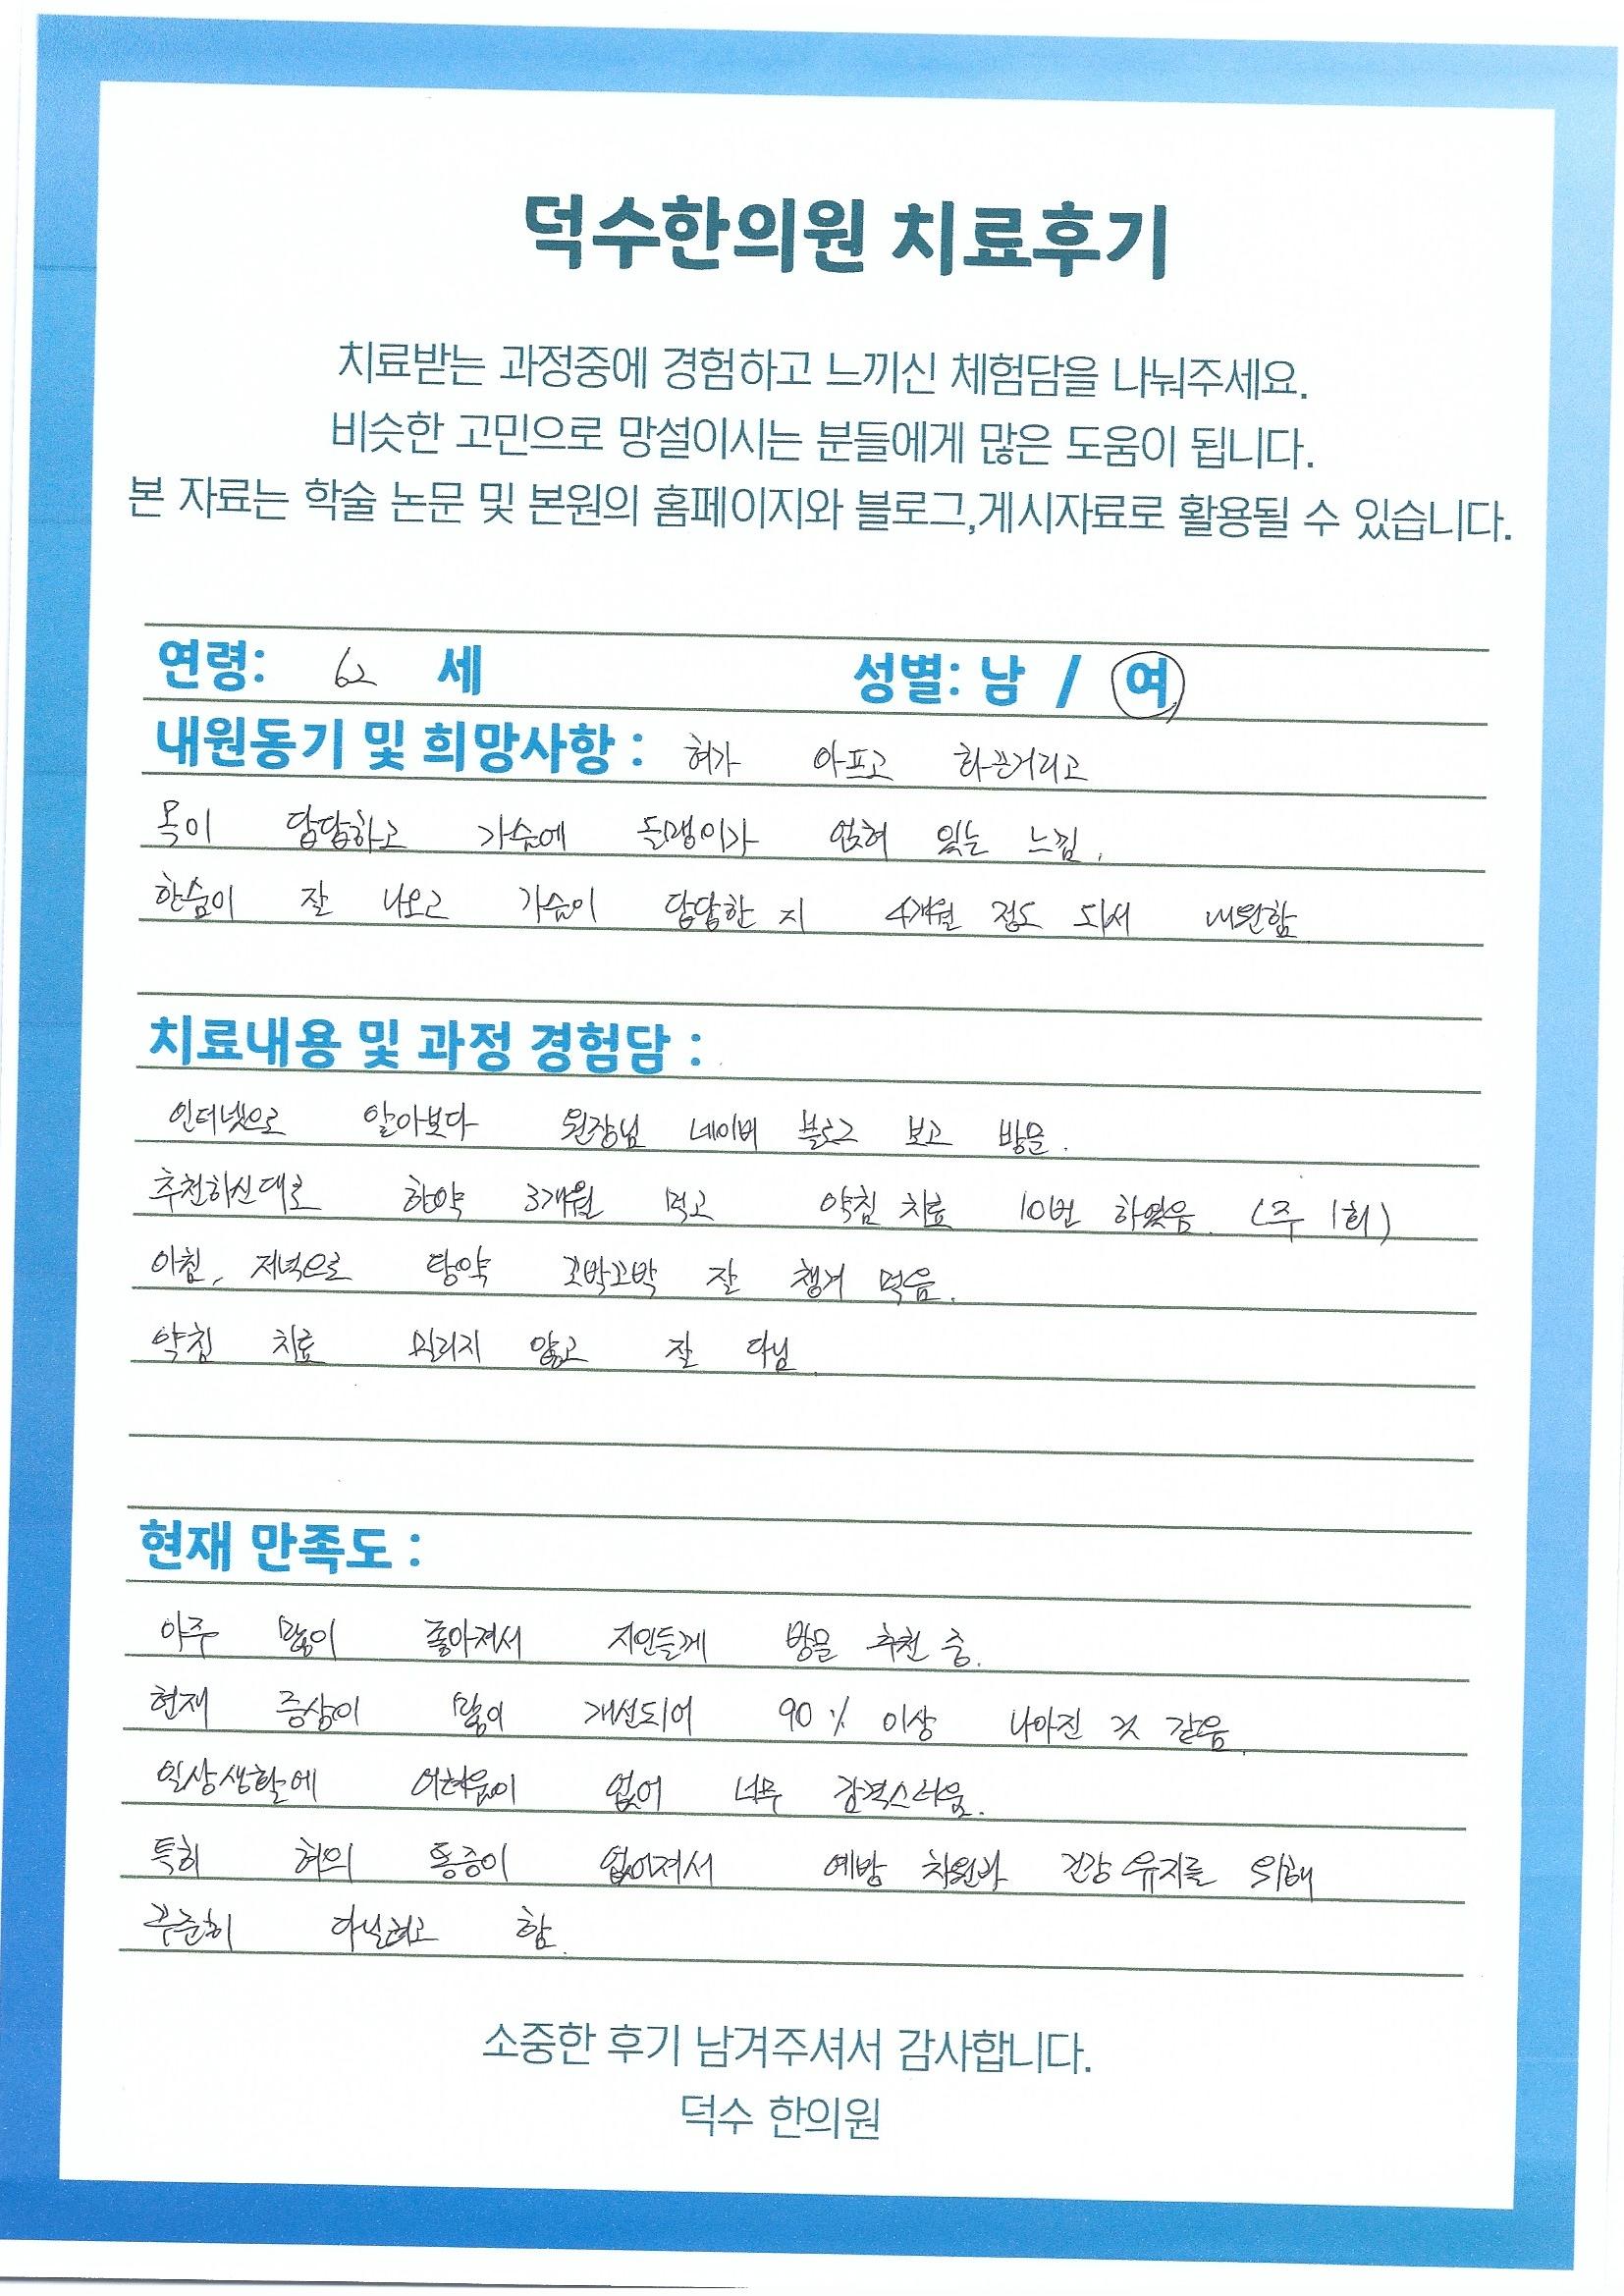 덕수한의원 치료후기
치료받는 과정중에 경험하고 느끼신 체험담을 나눠주세요.
비슷한 고민으로 망설이시는 분들에게 많은 도움이 됩니다.
본 자료는 학술 논문 및 본원의 홈페이지와 블로그,게시자료로 활용될 수 있습니다.
연령: 62 세 성별: 남 / 여
내원동기 및 희망사항 : 혀가 아프고 화끈거리고
목이 답답하고 가슴에 돌맹이가 얹혀 있는 느낌.
한숨이 잘 나오고 가슴이 답답한 지 4개월 정도 되서 내원함
치료내용 및 과정 경험담 :
인터넷으로 알아보다 원장님 네이버 블로그 보고 방문.
추천하신대로 한약 3개월 먹고 약침 치료 10번 하였음. (주 1회)
아침, 저녁으로 탕약 꼬박꼬박 잘 챙겨 먹음.
약침 치료 밀리지 않고 잘 다님.
현재 만족도 :
아주 많이 좋아져서 지인들께 방문 추천 중.
현재 증상이 많이 개선되어 90% 이상 나아진 것 같음.
일상생활에 어려움이 없어 너무 감격스러움.
특히 혀의 통증이 없어져서 예방 차원과 건강 유지를 위해
꾸준히 다닐려고 함.
소중한 후기 남겨주셔서 감사합니다.
덕수 한의원